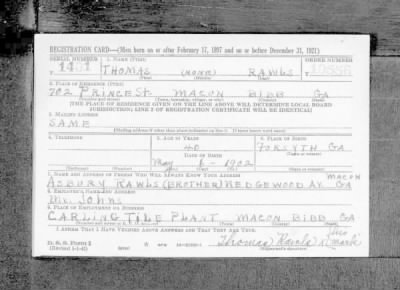 REGISTRATION CARD—(Men born on or after February 17, 1897 and on or before December 31, 1921)
SERIAL NUMBER 1. NAME (Print) ORDER NUMBER
T THOMAS (NONE) RAWLS
(First) (Middle) (Last)
2. PLACE OF RESIDENCE (Print)
702 PRINCE ST. MACON BIBB GA
[THE PLACE OF RESIDENCE GIVEN ON THE LINE ABOVE WILL DETERMINE LOCAL BOARD
JURISDICTION; LINE 2 OF REGISTRATION CERTIFICATE WILL BE IDENTICAL]
3. MAILING ADDRESS
SAME
[Mailing address if other than place indicated on line 2. If same insert word same]
4. TELEPHONE 5. AGE IN YEARS 6. PLACE OF BIRTH
40 FORSYTH GA
DATE OF BIRTH
May 6 - 1902
7. NAME AND ADDRESS OF PERSON WHO WILL ALWAYS KNOW YOUR ADDRESS MACON
ASBURY RAWLS (BROTHER) HEDGEWOOD AV. GA
8. EMPLOYER'S NAME AND ADDRESS
Mr. Johns
9. PLACE OF EMPLOYMENT OR BUSINESS
CARLING TILE PLANT MACON BIBB GA
I AFFIRM THAT I HAVE VERIFIED ABOVE ANSWERS AND THAT THEY ARE TRUE.
D. S. S. Form 1
(Revised 4-1-42) (over)
Thomas Rawls his mark